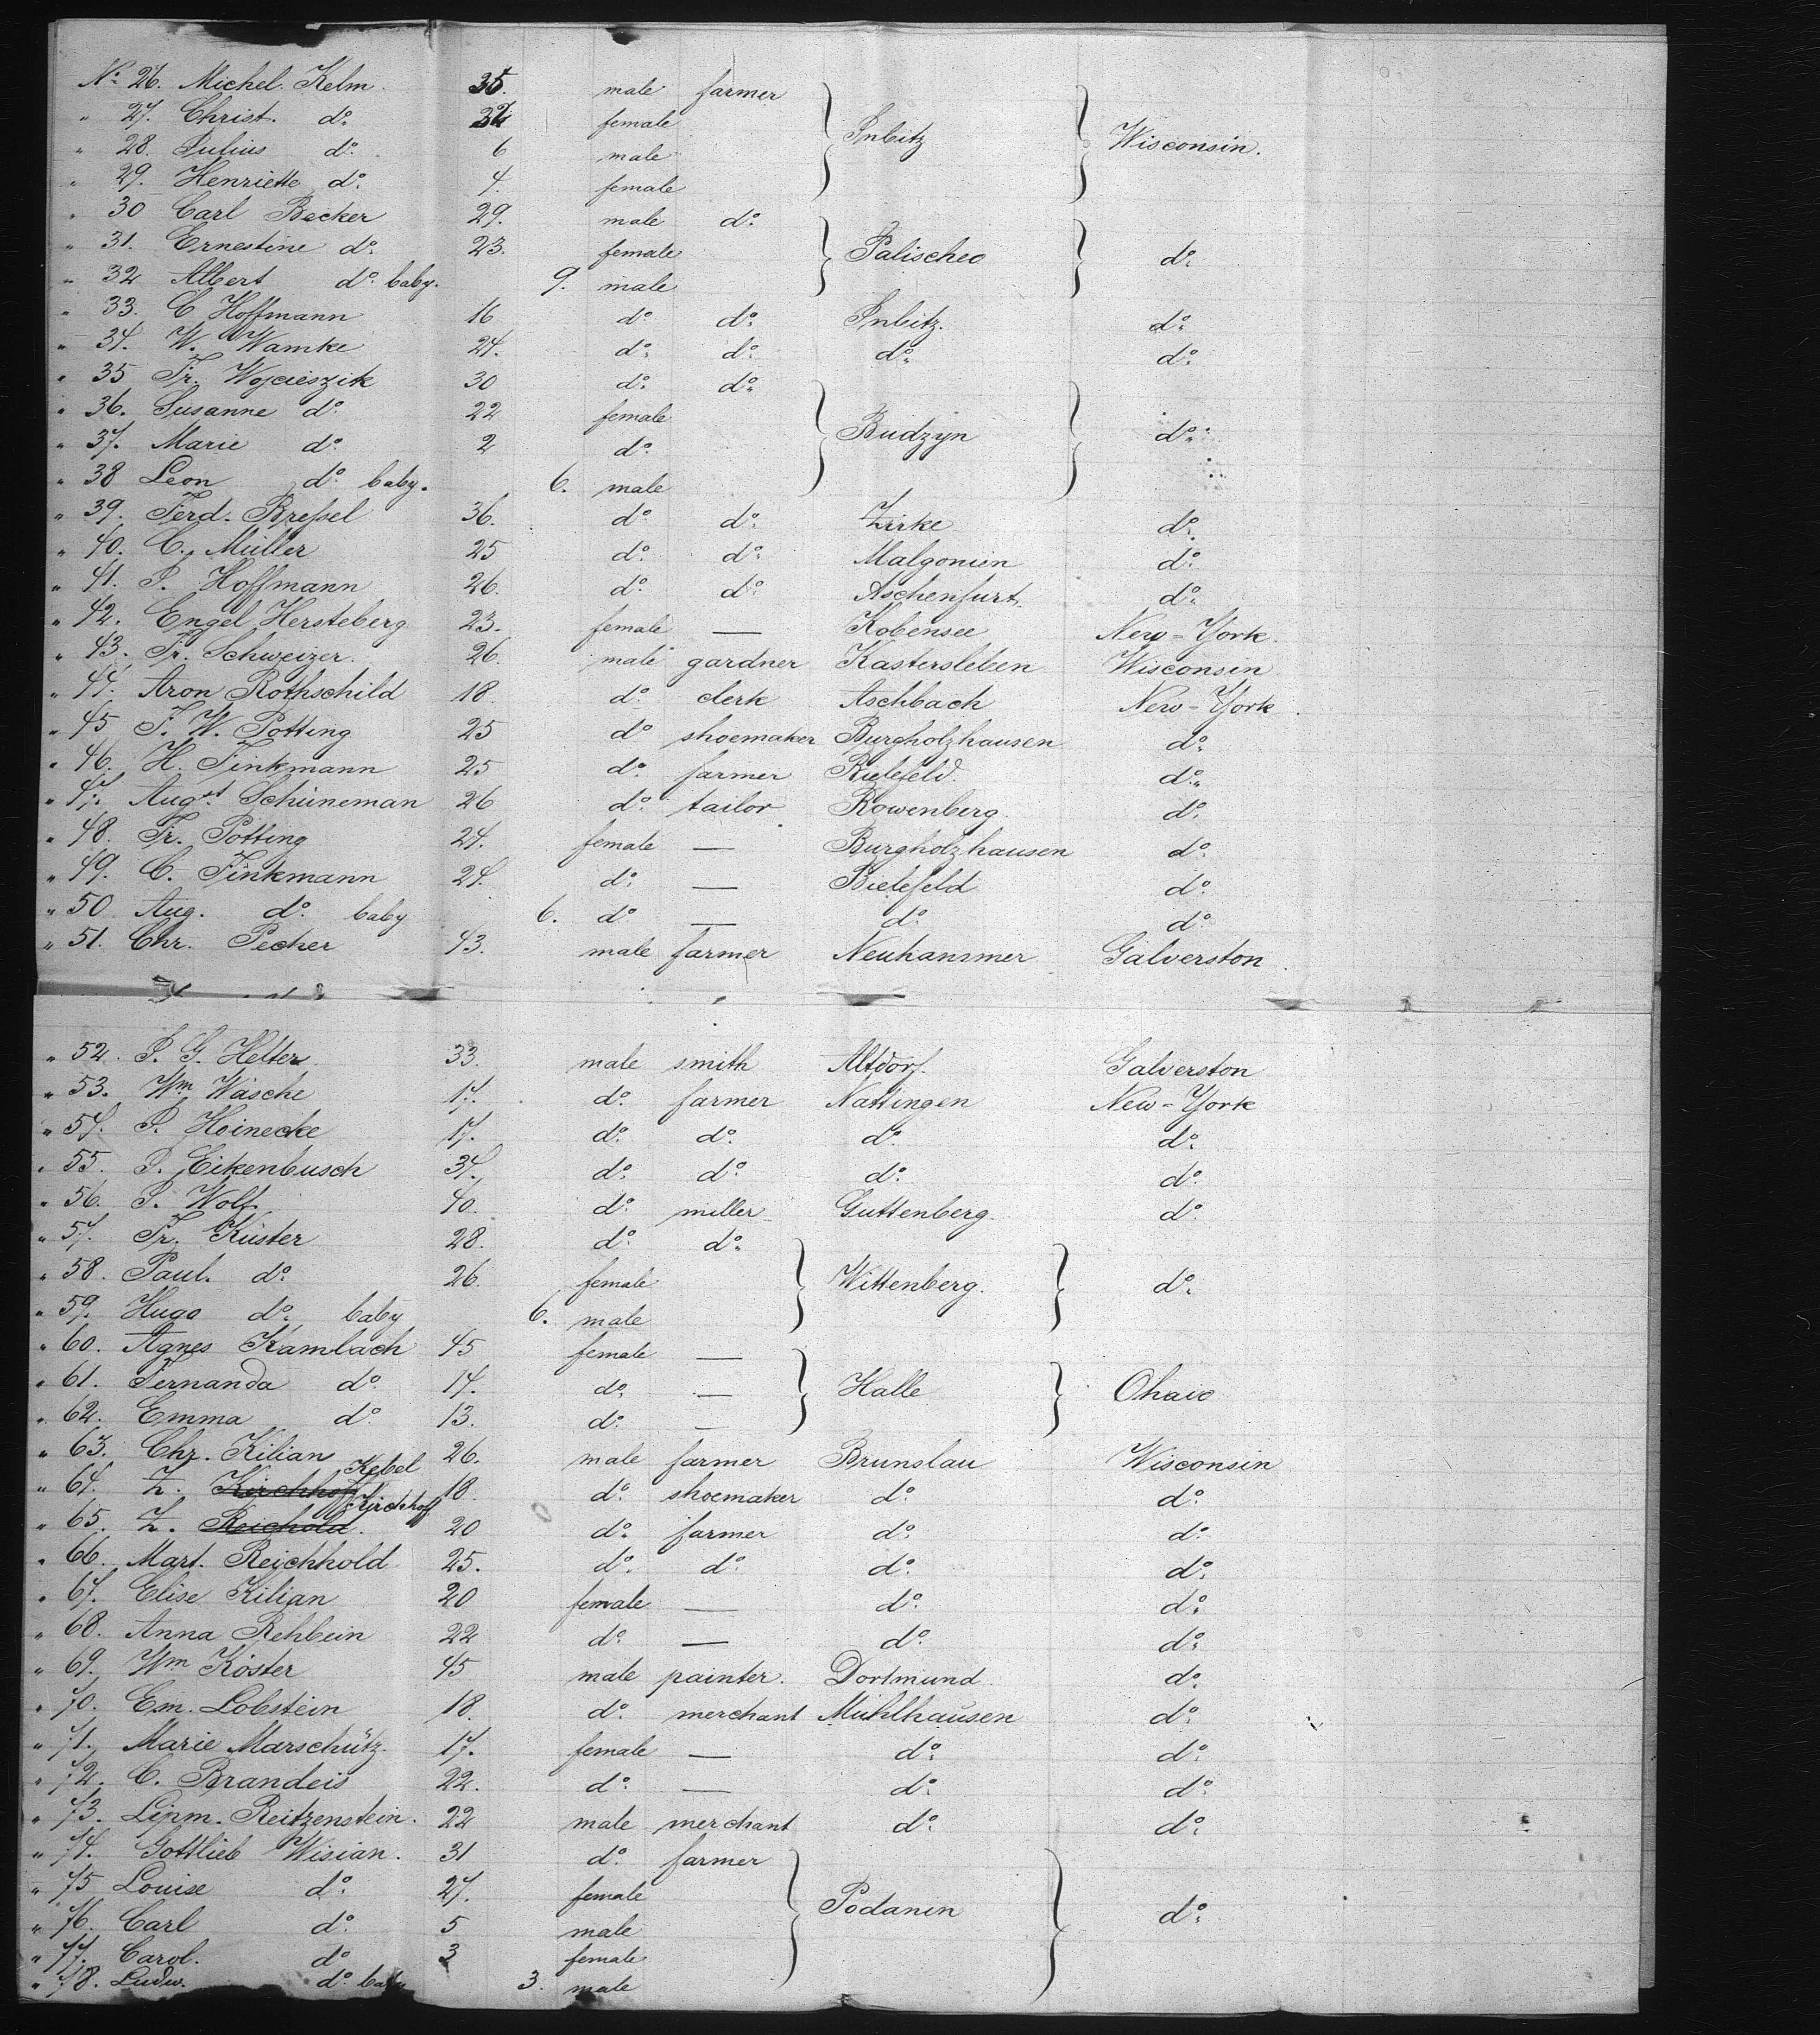 No. 26. Michel Kelm. 35. male farmer
" 27. Christ. do. 32 female Inbitz Wisconsin.
" 28. Julius do. 6 male
" 29. Henriette do. 4. female
" 30 Carl Becker 29. male do.
" 31. Ernestine do. 23. female Palischeo do.
" 32 Albert do. baby. 9. male
" 33. C Hoffmann 16 do. do. Inbitz. do.
" 34. W. Wamke 24. do. do. do. do.
" 35 Fr. Wojcieszik 30 do. do.
" 36. Susanne do. 22 female Budzyn do.
" 37. Marie do. 2 do.
" 38 Leon do. baby. 6. male
" 39. Ferd. Breſsel 36. do. do. Zirke do.
" 40. C. Müller 25 do. do. Malgonien do.
" 41. P. Hoffmann 26. do. do. Aschenfurt. do.
" 42. Engel Hersteberg 23. female — Kobensee New-York.
" 43. Fr. Schweizer. 26. male gardner Kastersleben Wisconsin
" 44. Aron Rothschild 18. do. clerk Aschbach New-York.
" 45 F. W. Potting 25 do shoemaker Burgholzhausen do.
" 46. H. Finkmann 25 do. farmer Bielefeld. do.
" 47. Augst Schüneman 26 do. tailor Rowenberg. do.
" 48. Fr. Potting 24. female — Burgholzhausen do.
" 49. C. Finkmann 24. do. — Bielefeld do.
" 50 Aug. do. baby 6. do. — do. do.
" 51. Chr. Pecher 43. male farmer Neuhammer Galverston
" 52. P. G. Helter 33. male smith Altdorf. Galverston
" 53. Wm Wäsche 17. do. farmer Nattingen New-York
" 54. P. Heinecke 17. do. do. do. do.
" 55. P. Eikenbusch 34. do. do. do. do.
" 56. P. Wolf. 40. do. miller Guttenberg. do.
" 57. Fr. Küster 28. do. do.
" 58. Paul. do. 26. female Wittenberg. do.
" 59. Hugo do. baby 6. male
" 60. Agnes Kambach 45 female —
" 61. Fernanda do. 14. do. — Halle Ohaio
" 62. Emma do. 13. do. —
" 63. Chr. Kilian 26. male farmer Brunslau Wisconsin
" 64. Z. Kirchhoff Kebel 18. do. shoemaker do. do.
" 65. Z. Reichold. Kirchhoff 20 do. farmer do. do.
" 66. Mart. Reichhold 25. do. do. do. do.
" 67. Elise Kilian 20 female — do. do.
" 68. Anna Rehbein 22 do. — do. do.
" 69. Wm Köster 45 male painter. Dortmund. do.
" 70. Em. Lobstein 18. do. merchant Mühlhausen do.
" 71. Marie Marschütz. 17. female — do. do.
" 72. C. Brandeis 22. do. — do. do.
" 73. Lipm. Reitzenstein. 22 male merchant do. do.
" 74. Gottlieb Wisian. 31 do. farmer
" 75 Louise do. 27. female Podanin do.
" 76. Carl do. 5 male
" 77. Carol. do 3 female
" 78. Ludw. do. baby 3. male